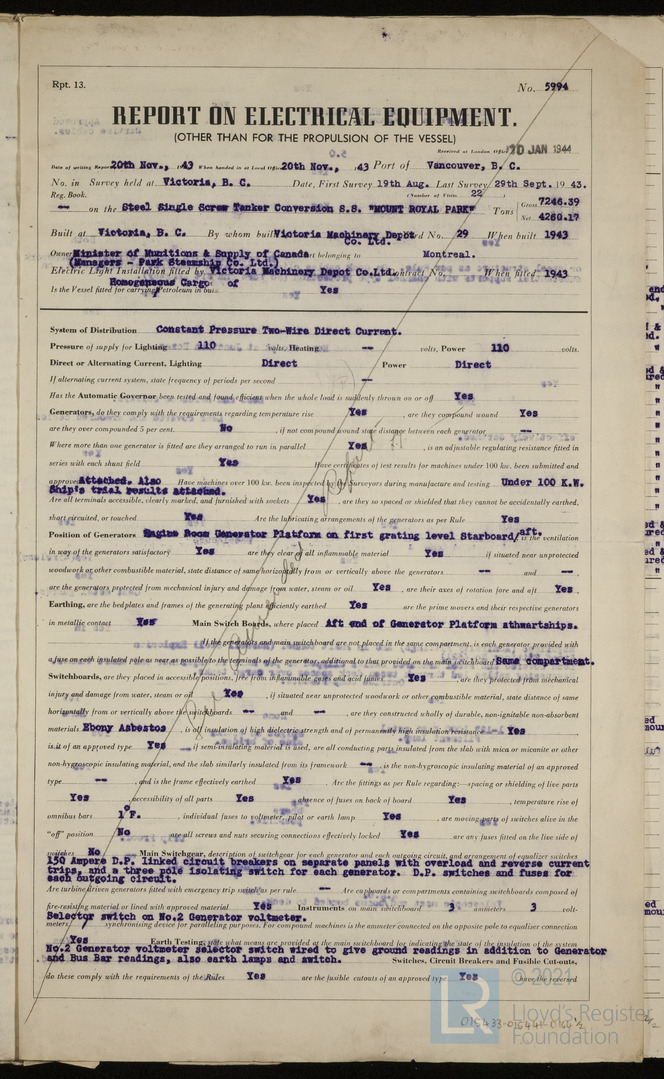 Rpt. 13.
No. 5994
REPORT ON ELECTRICAL EQUIPMENT.
(OTHER THAN FOR THE PROPULSION OF THE VESSEL)
Received at London Office 20 JAN 1944
Date of writing Report 20th Nov., 1943 When handed in at Local Office 20th Nov., 43 Port of Vancouver, B. C.
No. in Survey held at Victoria, B. C. Date, First Survey 19th Aug. Last Survey 29th Sept. 1943.
Reg. Book. (Number of Visits 22)
-- on the Steel Single Screw Tanker Conversion S.S. "MOUNT ROYAL PARK" Tons Gross 7246.39
Net 4260.17
Built at Victoria, B. C. By whom built Victoria Machinery Depot Co. Ltd. Yard No. 29 When built 1943
Owners Minister of Munitions & Supply of Canada Port belonging to Montreal.
(Managers - Park Steamship Co. Ltd.)
Electric Light Installation fitted by Victoria Machinery Depot Co.Ltd. Contract No. When fitted 1943
Homogeneous Cargo of
Is the Vessel fitted for carrying Petroleum in bulk Yes
System of Distribution Constant Pressure Two-Wire Direct Current.
Pressure of supply for Lighting 110 volts, Heating -- volts, Power 110 volts.
Direct or Alternating Current, Lighting Direct Power Direct
If alternating current system, state frequency of periods per second --
Has the Automatic Governor been tested and found efficient when the whole load is suddenly thrown on or off Yes
Generators, do they comply with the requirements regarding temperature rise Yes, are they compound wound Yes
are they over compounded 5 per cent. No, if not compound wound state distance between each generator --
Where more than one generator is fitted are they arranged to run in parallel Yes, is an adjustable regulating resistance fitted in
series with each shunt field Yes Have certificates of test results for machines under 100 kw. been submitted and
approved Attached. Also Ship's trial results attached. Have machines over 100 kw. been inspected by Surveyors during manufacture and testing Under 100 K.W.
Are all terminals accessible, clearly marked, and furnished with sockets Yes, are they so spaced or shielded that they cannot be accidentally earthed,
short circuited, or touched Yes Are the lubricating arrangements of the generators as per Rule Yes
Position of Generators Engine Room Generator Platform on first grating level Starboard/aft. is the ventilation
in way of the generators satisfactory Yes are they clear of all inflammable material Yes if situated near unprotected
woodwork or other combustible material, state distance of same horizontally from or vertically above the generators -- and --
are the generators protected from mechanical injury and damage from water, steam or oil Yes, are their axes of rotation fore and aft Yes
Earthing, are the bedplates and frames of the generating plant efficiently earthed Yes are the prime movers and their respective generators
in metallic contact Yes Main Switch Boards, where placed Aft end of Generator Platform athwartships.
If the generators and main switchboard are not placed in the same compartment, is each generator provided with
a fuse on each insulated pole as near as possible to the terminals of the generator, additional to that provided on the main switchboard Same compartment.
Switchboards, are they placed in accessible positions, free from inflammable gases and acid fumes Yes, are they protected from mechanical
injury and damage from water, steam or oil Yes, if situated near unprotected woodwork or other combustible material, state distance of same
horizontally from or vertically above the switchboards -- and --, are they constructed wholly of durable, non-ignitable non-absorbent
materials Ebony Asbestos, is all insulation of high dielectric strength and of permanently high insulation resistance Yes
is it of an approved type Yes, if semi-insulating material is used, are all conducting parts insulated from the slab with mica or micanite or other
non-hygroscopic insulating material, and the slab similarly insulated from its framework --, is the non-hygroscopic insulating material of an approved
type --, and is the frame effectively earthed Yes. Are the fittings as per Rule regarding:—spacing or shielding of live parts
Yes, accessibility of all parts Yes, absence of fuses on back of board Yes, temperature rise of
omnibus bars 1°F., individual fuses to voltmeter, pilot or earth lamp Yes, are moving parts of switches alive in the
"off" position No are all screws and nuts securing connections effectively locked Yes are any fuses fitted on the live side of
switches No Main Switchgear, description of switchgear for each generator and each outgoing circuit, and arrangement of equalizer switches
150 Ampere D.P. linked circuit breakers on separate panels with overload and reverse current
trips, and a three pole isolating switch for each generator. D.P. switches and fuses for
each outgoing circuit.
Are turbine driven generators fitted with emergency trip switch as per rule -- Are cupboards or compartments containing switchboards composed of
fire-resisting material or lined with approved material Yes Instruments on main switchboard 3 ammeters 3 volt-
Selector switch on No.2 Generator voltmeter.
meters synchronising device for paralleling purposes. For compound machines is the ammeter connected on the opposite pole to equaliser connection
Yes Earth Testing, state what means are provided at the main switchboard for indicating the state of the insulation of the system
No.2 Generator voltmeter selector switch wired to give ground readings in addition to Generator
and Bus Bar readings, also earth lamps and switch. Switches, Circuit Breakers and Fusible Cut-outs,
do these comply with the requirements of the Rules Yes are the fusible cutouts of an approved type Yes have the reversed
© 2021
LR
Lloyd's Register
Foundation